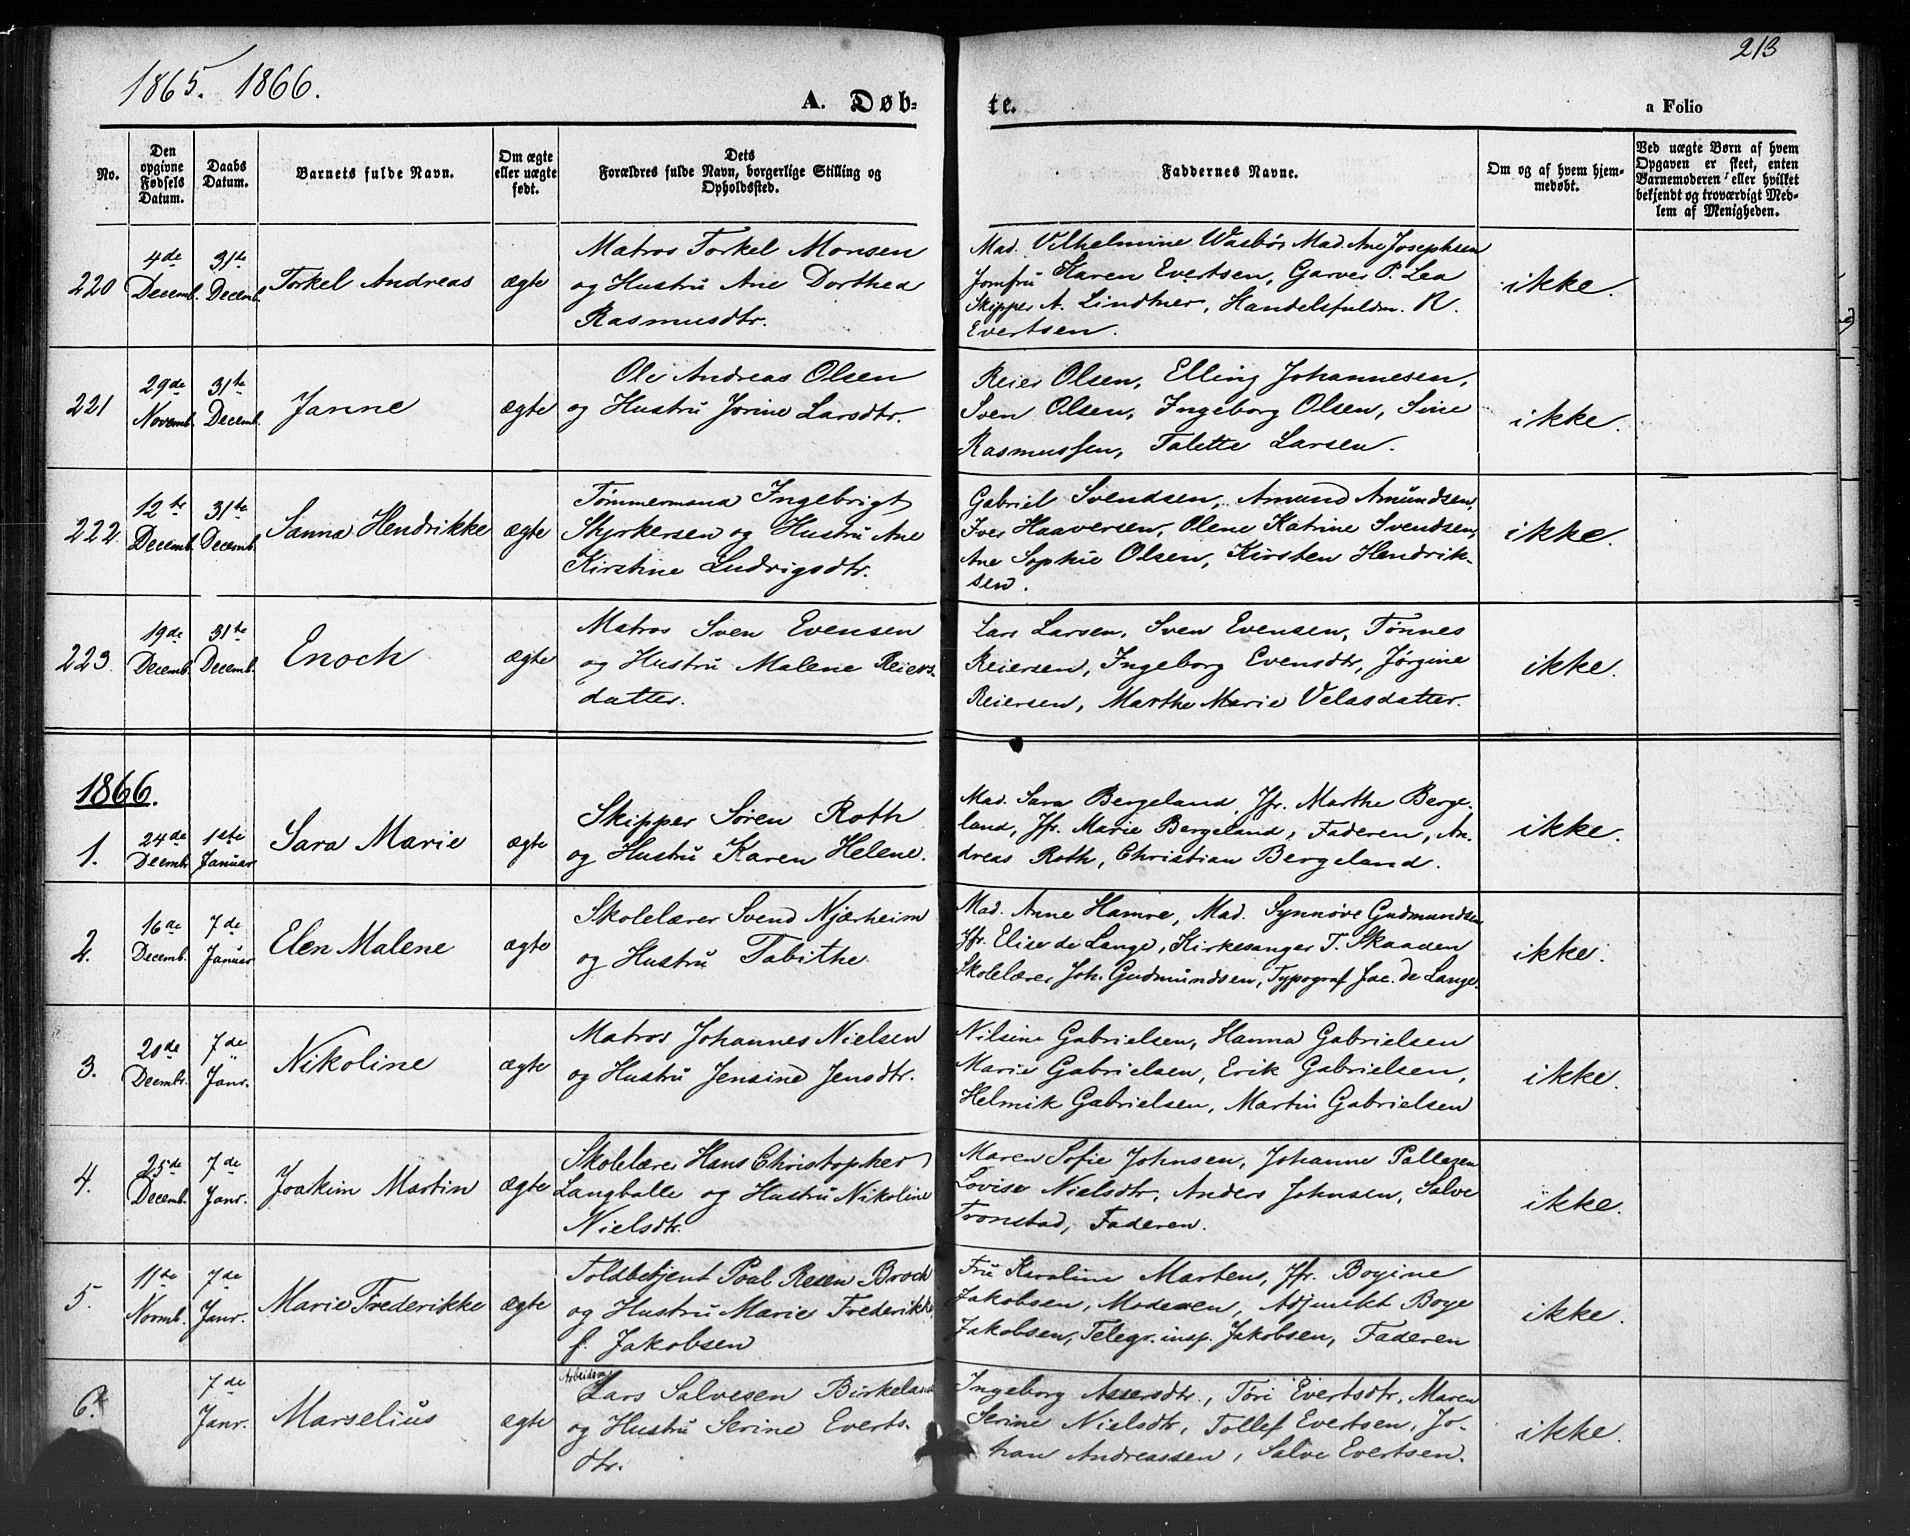 213
1865. 1866.
A. Døb- te.
a Folio
No.
Den opgivne Fødsels Datum.
Daabs Datum.
Barnets fulde Navn.
Om ægte eller uægte født.
Dets Forældres fulde Navn, borgerlige Stilling og Opholdssted.
Faddernes Navne.
Om og af hvem hjemmedøbt.
Ved uægte Børn af hvem Opgaven er skeet, enten Barnemoderen eller hvilket bekjendt og troværdigt Medlem af Menigheden.
220
4de Decemb.
31te Decemb.
Torkel Andreas
ægte
Matros Torkel Monsen
og Hustru Ane Dorthea
Rasmusdtr.
Mad. Vilhelmine Wasbøs Mad. Ane Josephsen
Jomfru Karen Evertsen, Garver P. Lea
Skipper A. Lindtner, Handelsfuldm. R.
Evertsen.
ikke.
221
29de Novemb.
31te Decemb.
Janne
ægte
Ole Andreas Olsen
og Hustru Jorine Larsdtr.
Reier Olsen, Elling Johannesen,
Sven Olsen, Ingeborg Olsen, Sine
Rasmussen, Talette Larsen.
ikke.
222
12te Decemb.
31te Decemb.
Sanna Hendrikke
ægte
Tømmermand Ingebrigt
Styrkersen og Hustru Ane
Kirstine Ludvigsdtr.
Gabriel Svendsen, Amund Amundsen,
Iver Haaversen, Olene Katrine Svendsen,
Ane Sophie Olsen, Kirsten Hendrik-
sen.
ikke.
223.
19de Decemb.
31te Decemb.
Enoch
ægte
Matros Sven Evensen
og Hustru Malene Reiers-
datter.
Lars Larsen, Sven Evensen, Tønnes
Reiersen, Ingeborg Evensdtr, Jørgine
Reiersen, Marthe Marie Velasdatter.
ikke.
1866.
1.
24de Decemb.
1ste Januar
Sara Marie
ægte
Skipper Søren Roth
og Hustru Karen Helene.
Mad. Sara Bergeland, Jfr. Marthe Berge-
land, Jfr. Marie Bergeland, Faderen, An-
dreas Roth, Christian Bergeland.
ikke.
2.
16de Decemb.
7de Januar
Elen Malene
ægte
Skolelærer Svend Njærheim
og Hustru Tabithe
Mad. Anne Hamre, Mad. Synnøve Gudmundsen
Jfr. Elise de Lange, Kirkesanger T. Skaaden
Skolelærer Joh. Gudmundsen, Typograf Jac. de Lange.
ikke.
3.
20de Decembr.
7de Janr.
Nikoline
ægte
Matros Johannes Nielsen
og Hustru Jensine Jensdtr.
Nilsine Gabrielsen, Hanna Gabrielsen
Marie Gabrielsen, Erik Gabrielsen,
Helmik Gabrielsen, Martin Gabrielsen
ikke.
4.
25de Decemb.
7de Janr.
Joakim Martin
ægte
Skolelærer Hans Christopher
Langballe og Hustru Nikoline
Nielsdtr.
Maren Sofie Johnsen, Johanne Pallesen
Lovise Nielsdtr, Anders Johnsen, Salve
Tronstad, Faderen.
ikke.
5.
11te Novmb.
7de Janr.
Marie Frederikke
ægte
Toldbetjent Poal Resen Broch
og Hustru Marie Frederikke,
f. Jakobsen
Fru Karoline Martens, Jfr. Bogine
Jakobsen, Moderen, Adjunkt Boye
Jakobsen, Telegr. insp. Jakobsen, Faderen
ikke.
6.
7de Janr.
Marselius
ægte
Arbeidsm.
Lars Salvesen Birkeland
og Hustru Serine Everts-
dtr.
Ingeborg Assersdtr., Tøri Evertsdtr, Maren
Serine Nielsdtr, Tollef Evertsen, Jo-
han Andreassen, Salve Evertsen.
ikke.